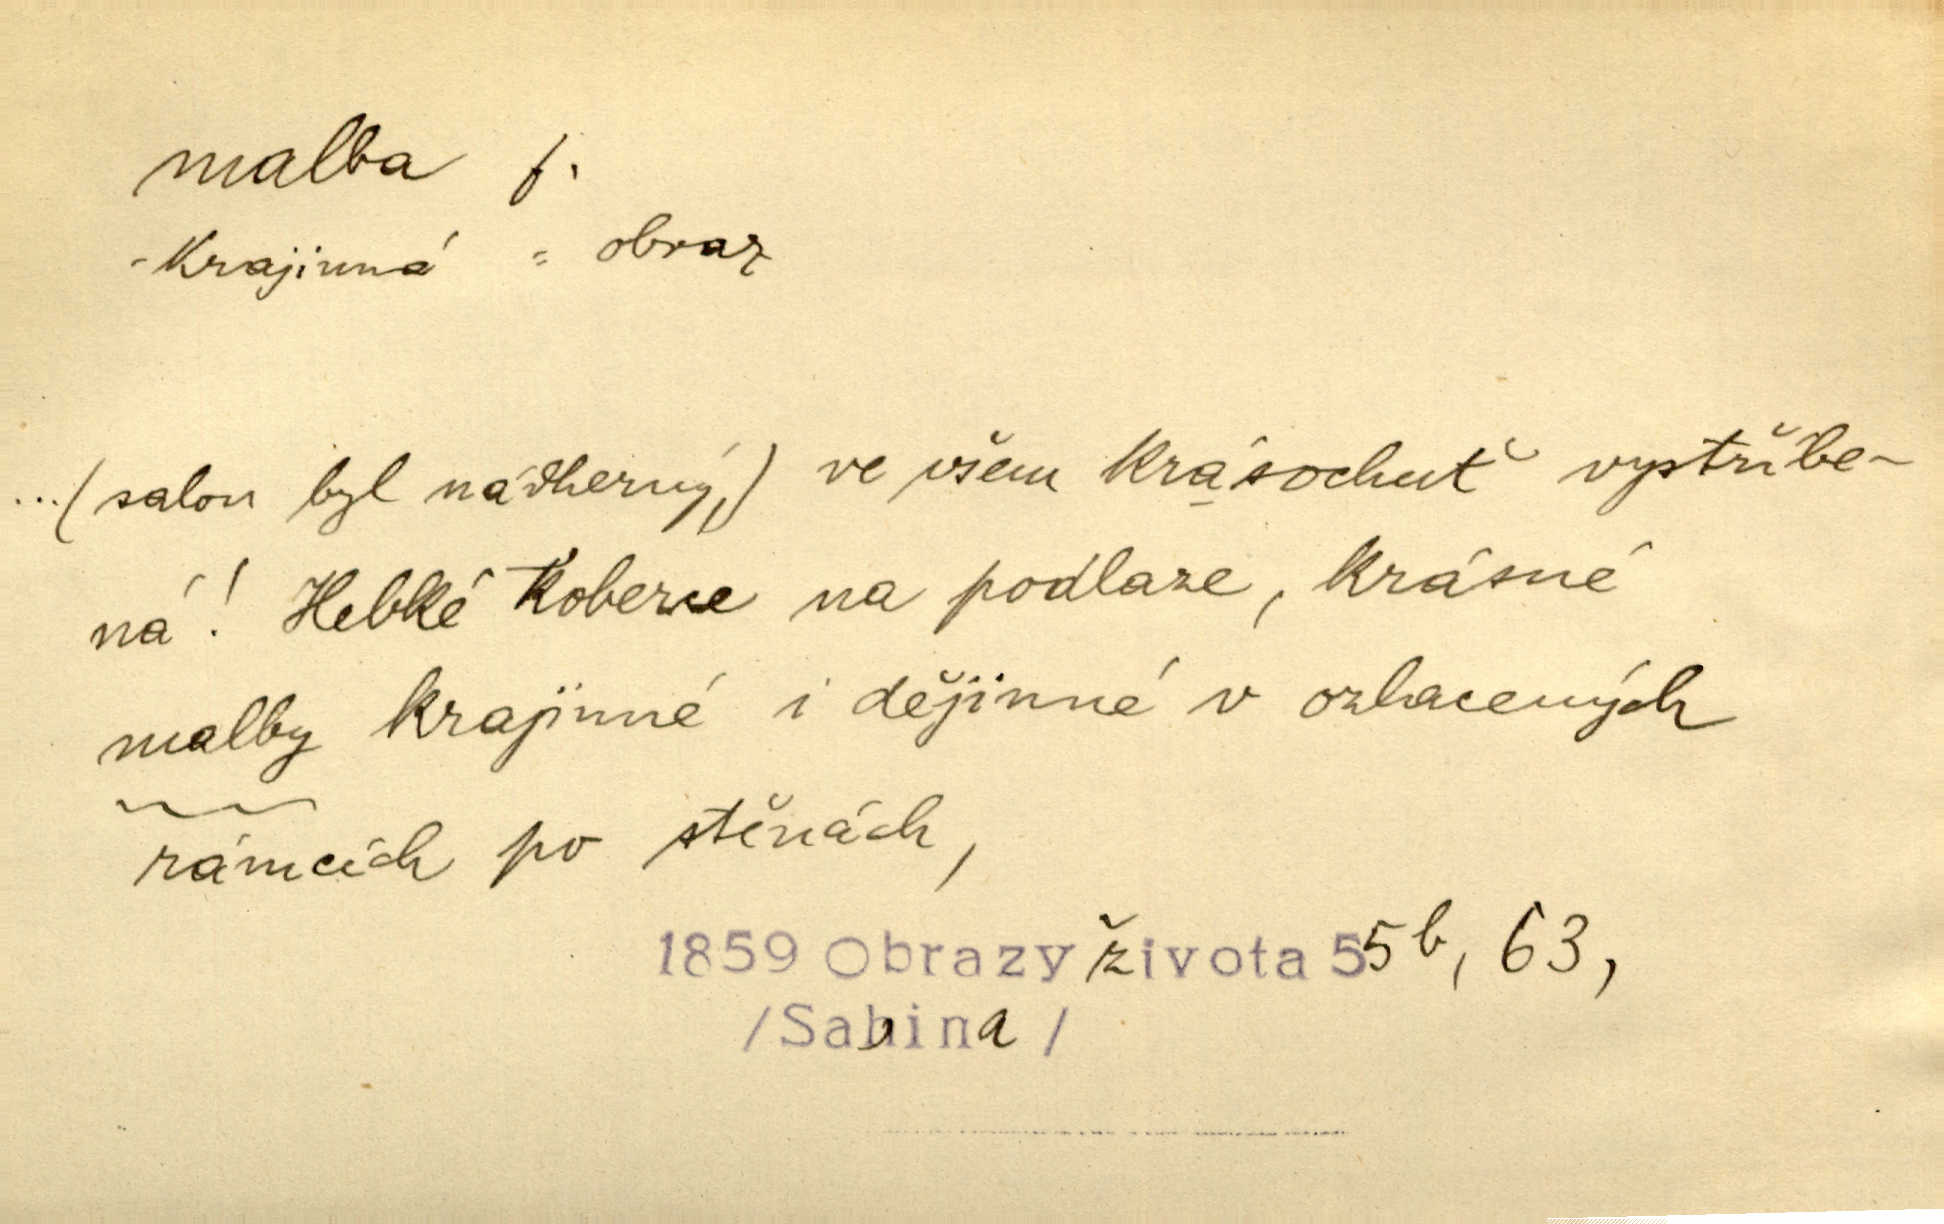 malba f.
- krajinná = obraz
...(salon byl nádherný,) ve všem krásochuť vystříbe-
ná! Hebké koberce na podlaze, krásné
malby krajinné i dějinné v ozlacených
rámcích po stěnách,
1859 Obrazy života 55b, 63,
/Sabina/